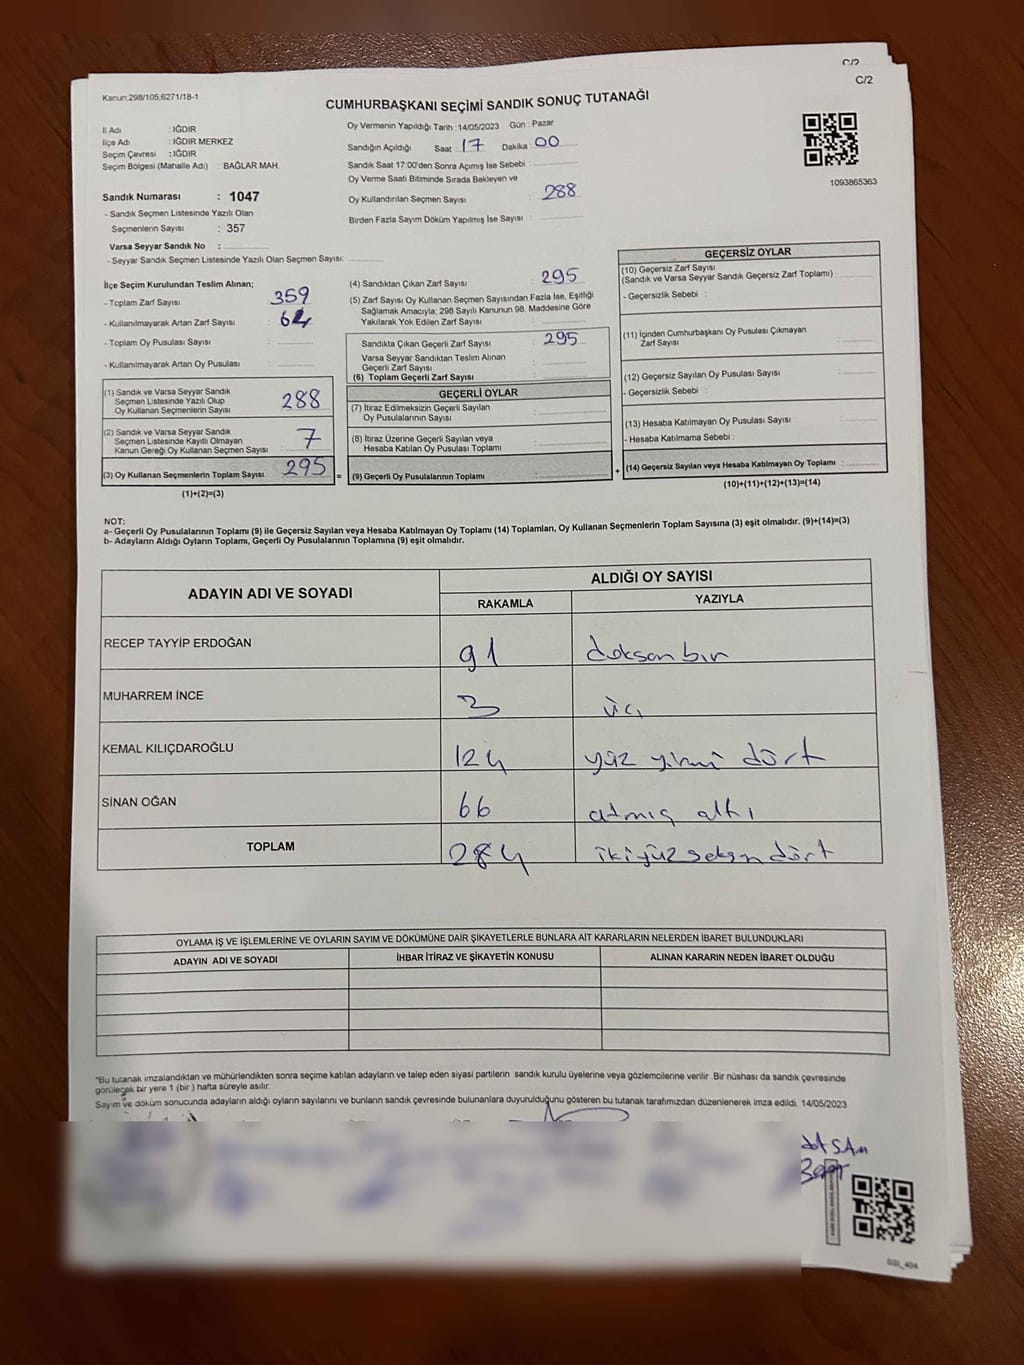 C/2
C/2
Kanun:298/105;6271/18-1
CUMHURBAŞKANI SEÇİMİ SANDIK SONUÇ TUTANAĞI
İl Adı : IĞDIR
İlçe Adı : IĞDIR MERKEZ
Seçim Çevresi : IĞDIR
Seçim Bölgesi (Mahalle Adı) : BAĞLAR MAH.
Oy Vermenin Yapıldığı Tarih :14/05/2023 Gün : Pazar
Sandığın Açıldığı Saat : 17 Dakika : 00
Sandık Saat 17:00'den Sonra Açımış İse Sebebi :
Oy Verme Saati Bitiminde Sırada Bekleyen ve
Oy Kullandırılan Seçmen Sayısı : 288
Birden Fazla Sayım Döküm Yapılmış İse Sayısı :
1093865363
Sandık Numarası : 1047
- Sandık Seçmen Listesinde Yazılı Olan
Seçmenlerin Sayısı : 357
Varsa Seyyar Sandık No :
- Seyyar Sandık Seçmen Listesinde Yazılı Olan Seçmen Sayısı:
İlçe Seçim Kurulundan Teslim Alınan;
- Toplam Zarf Sayısı : 359
- Kullanılmayarak Artan Zarf Sayısı : 64
- Toplam Oy Pusulası Sayısı :
- Kullanılmayarak Artan Oy Pusulası :
(1) Sandık ve Varsa Seyyar Sandık
Seçmen Listesinde Yazılı Olup
Oy Kullanan Seçmenlerin Sayısı : 288
(2) Sandık ve Varsa Seyyar Sandık
Seçmen Listesinde Kayıtlı Olmayan
Kanun Gereği Oy Kullanan Seçmen Sayısı : 7
(3) Oy Kullanan Seçmenlerin Toplam Sayısı : 295 =
(1)+(2)=(3)
(4) Sandıktan Çıkan Zarf Sayısı : 295
(5) Zarf Sayısı Oy Kullanan Seçmen Sayısından Fazla İse, Eşitliği
Sağlamak Amacıyla; 298 Sayılı Kanunun 98. Maddesine Göre
Yakılarak Yok Edilen Zarf Sayısı :
Sandıkta Çıkan Geçerli Zarf Sayısı : 295
Varsa Seyyar Sandıktan Teslim Alınan
Geçerli Zarf Sayısı :
(6) Toplam Geçerli Zarf Sayısı :
GEÇERLİ OYLAR
(7) İtiraz Edilmeksizin Geçerli Sayılan
Oy Pusulalarının Sayısı :
(8) İtiraz Üzerine Geçerli Sayılan veya
Hesaba Katılan Oy Pusulası Toplamı :
(9) Geçerli Oy Pusulalarının Toplamı : +
GEÇERSİZ OYLAR
(10) Geçersiz Zarf Sayısı
(Sandık ve Varsa Seyyar Sandık Geçersiz Zarf Toplamı) :
- Geçersizlik Sebebi :
(11) İçinden Cumhurbaşkanı Oy Pusulası Çıkmayan
Zarf Sayısı :
(12) Geçersiz Sayılan Oy Pusulası Sayısı :
- Geçersizlik Sebebi :
(13) Hesaba Katılmayan Oy Pusulası Sayısı :
- Hesaba Katılmama Sebebi :
(14) Geçersiz Sayılan veya Hesaba Katılmayan Oy Toplamı :
(10)+(11)+(12)+(13)=(14)
NOT:
a- Geçerli Oy Pusulalarının Toplamı (9) ile Geçersiz Sayılan veya Hesaba Katılmayan Oy Toplamı (14) Toplamları, Oy Kullanan Seçmenlerin Toplam Sayısına (3) eşit olmalıdır. (9)+(14)=(3)
b- Adayların Aldığı Oyların Toplamı, Geçerli Oy Pusulalarının Toplamına (9) eşit olmalıdır.
ADAYIN ADI VE SOYADI ALDIĞI OY SAYISI
RAKAMLA YAZIYLA
RECEP TAYYİP ERDOĞAN 91 doksan bir
MUHARREM İNCE 3 üç
KEMAL KILIÇDAROĞLU 124 yüz yirmi dört
SİNAN OĞAN 66 atmış altı
TOPLAM 284 ikiyüz seksen dört
OYLAMA İŞ VE İŞLEMLERİNE VE OYLARIN SAYIM VE DÖKÜMÜNE DAİR ŞİKAYETLERLE BUNLARA AİT KARARLARIN NELERDEN İBARET BULUNDUKLARI
ADAYIN ADI VE SOYADI İHBAR İTİRAZ VE ŞİKAYETİN KONUSU ALINAN KARARIN NEDEN İBARET OLDUĞU
*Bu tutanak imzalandıktan ve mühürlendikten sonra seçime katılan adayların ve talep eden siyasi partilerin sandık kurulu üyelerine veya gözlemcilerine verilir. Bir nüshası da sandık çevresinde
görülecek bir yere 1 (bir ) hafta süreyle asılır.
Sayım ve döküm sonucunda adayların aldığı oyların sayılarını ve bunların sandık çevresinde bulunanlara duyurulduğunu gösteren bu tutanak tarafımızdan düzenlenerek imza edildi. 14/05/2023